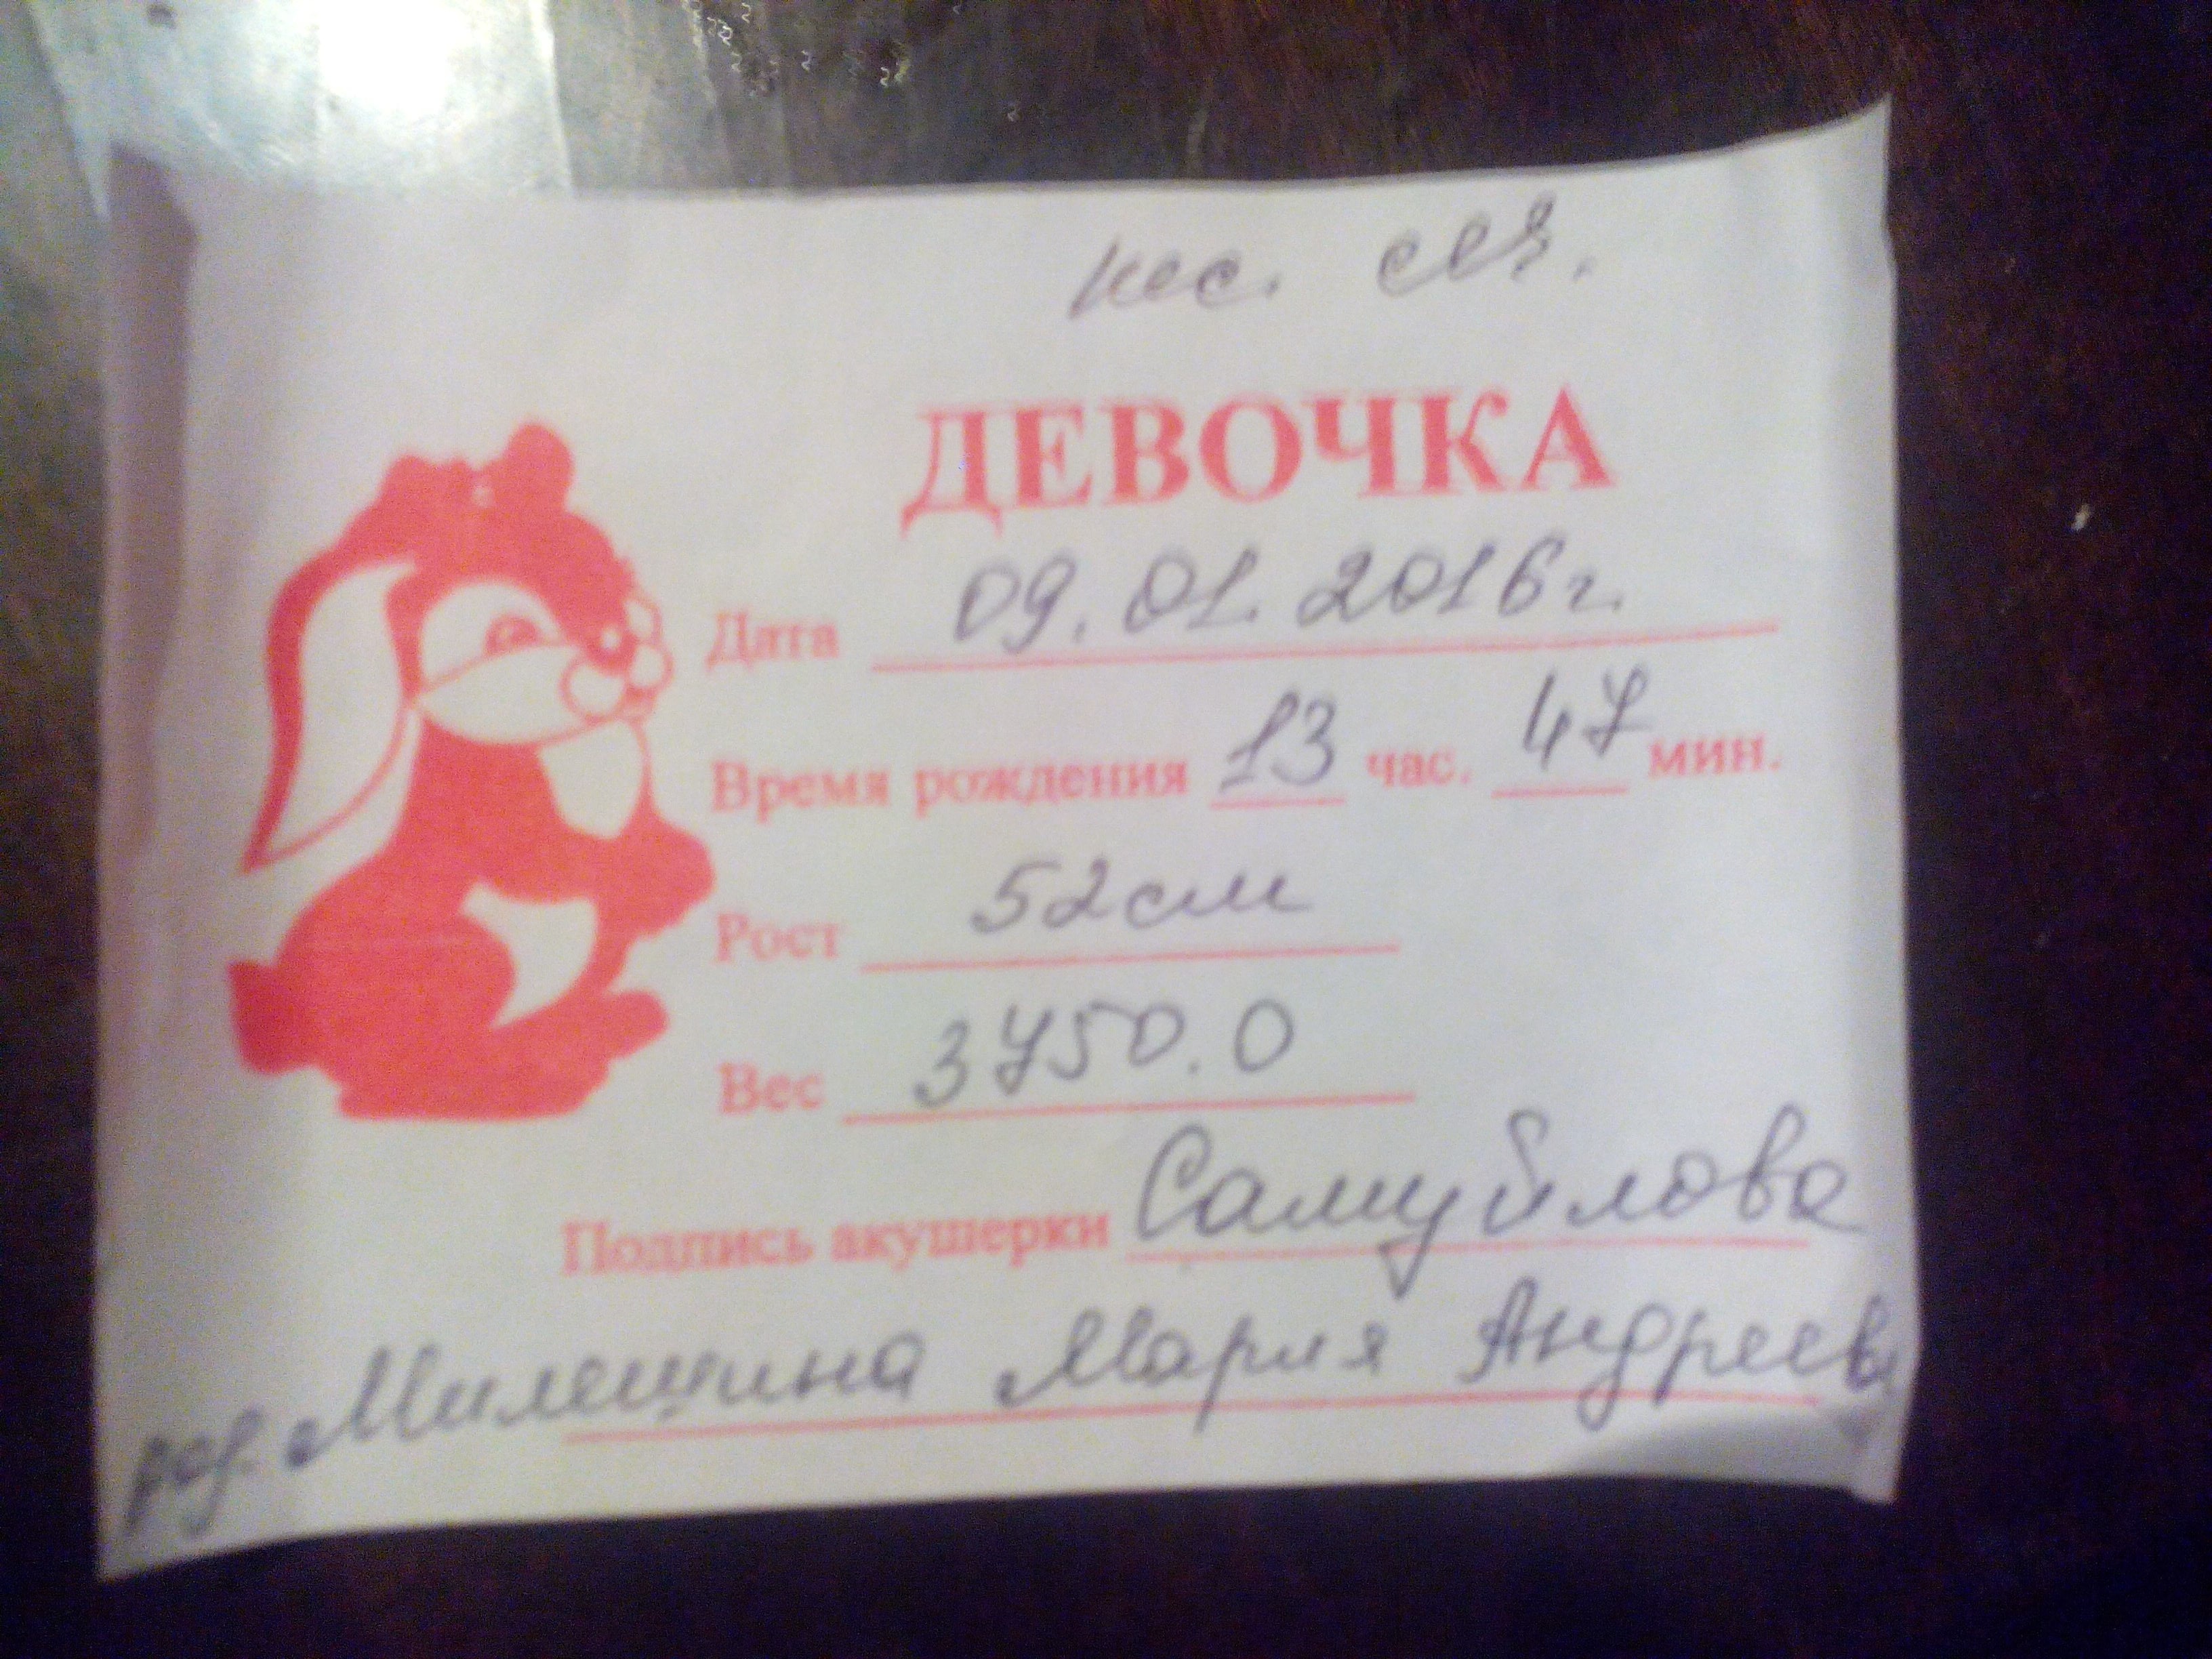 кес. сеч.
ДЕВОЧКА
Дата 09.01.2016г.
Время рождения 13 час. 47 мин.
Рост 52см
Вес 3750.0
Подпись акушерки Самуйлова
род. Милещина Мария Андреев